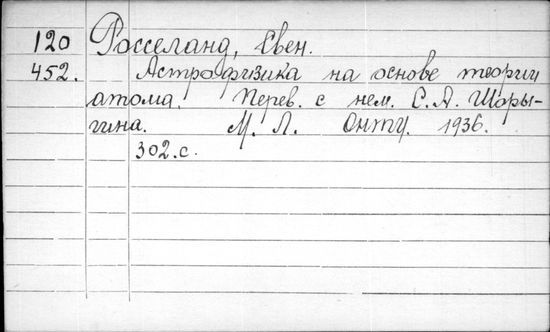 120 Росселанд, Свен.
452. Астрофизика на основе теории
атома. Перев. с нем. С. А. Шоры-
гина. М. Л. Онти. 1936.
302. с.